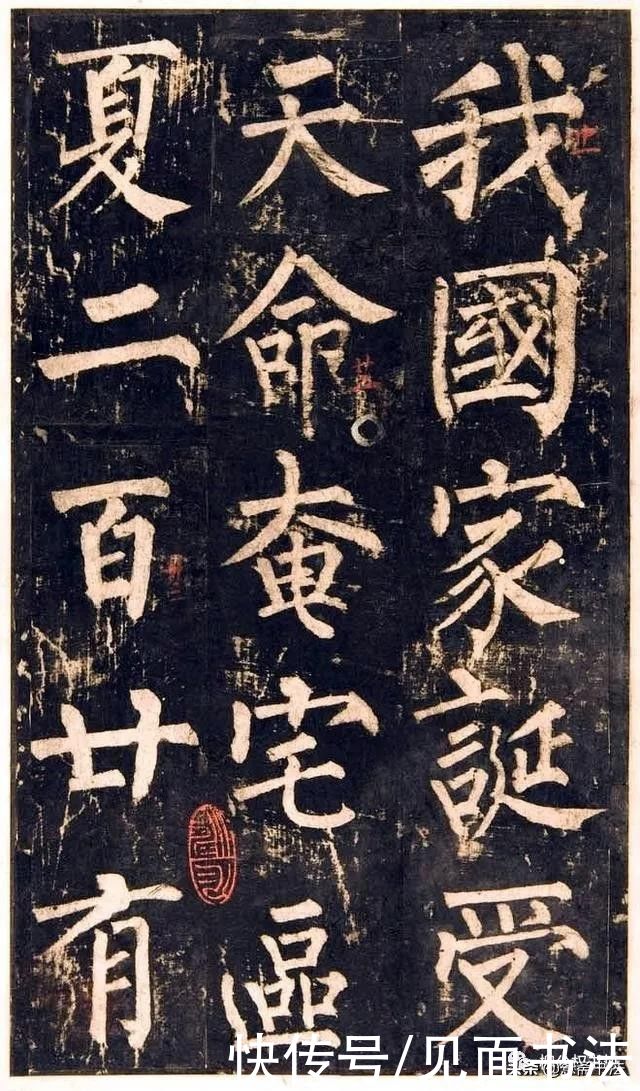 我國家誕受
天命奄宅區
夏二百廿有
快传号/见面书法